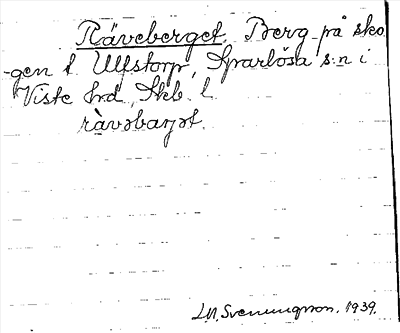 Räveberget. Berg på sko
-gen t Ulfstorp, Sparlösa s:n i
Viste hrd, Skb. l
rävəbarjət.
L.N. Svenungsson. 1939.